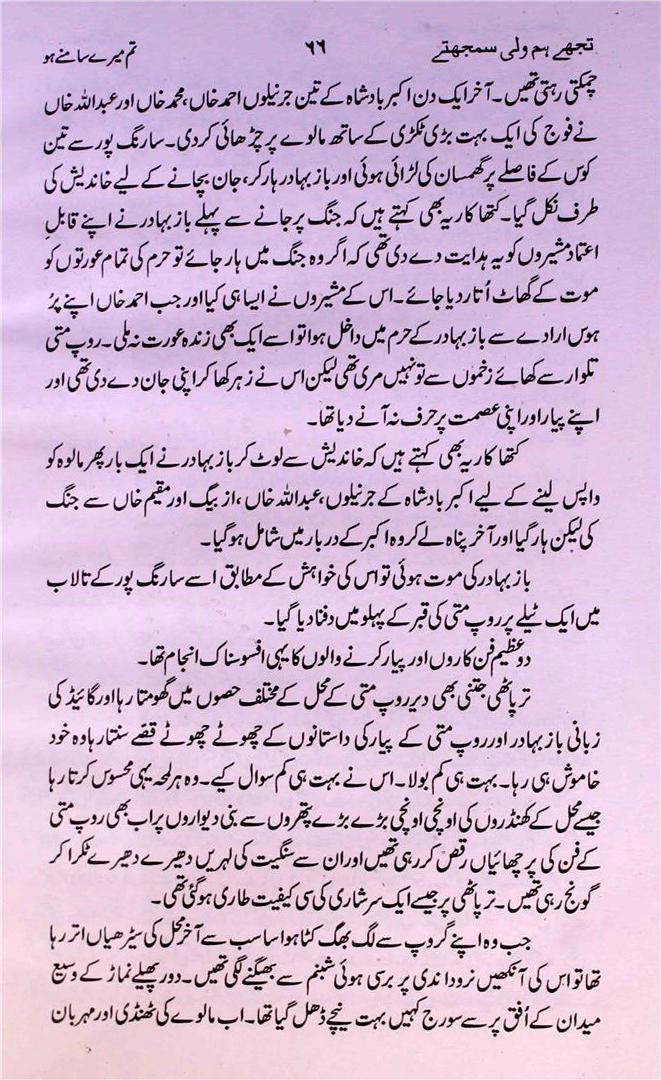 تجھے ہم ولی سمجھتے ۶۶ تم میرے سامنے ہو
چمکتی رہتی تھیں۔ آخر ایک دن اکبر بادشاہ کے تین جرنیلوں احمد خاں، محمد خاں اور عبداللہ خاں
نے فوج کی ایک بہت بڑی ٹکڑی کے ساتھ مالوے پر چڑھائی کردی۔ سارنگ پور سے تین
کوس کے فاصلے پر گھمسان کی لڑائی ہوئی اور باز بہادر ہار کر، جان بچانے کے لیے خاندیش کی
طرف نکل گیا۔ کتھا کار یہ بھی کہتے ہیں کہ جنگ پر جانے سے پہلے باز بہادر نے اپنے قابلِ
اعتماد مشیروں کو یہ ہدایت دے دی تھی کہ اگر وہ جنگ میں ہار جائے تو حرم کی تمام عورتوں کو
موت کے گھاٹ اُتار دیا جائے۔ اس کے مشیروں نے ایسا ہی کیا اور جب احمد خاں اپنے پُر
ہوس ارادے سے باز بہادر کے حرم میں داخل ہوا تو اسے ایک بھی زندہ عورت نہ ملی۔ روپ متی
تلوار سے کھائے زخموں سے تو نہیں مری تھی لیکن اس نے زہر کھا کر اپنی جان دے دی تھی اور
اپنے پیار اور اپنی عصمت پر حرف نہ آنے دیا تھا۔
کتھا کار یہ بھی کہتے ہیں کہ خاندیش سے لوٹ کر باز بہادر نے ایک بار پھر مالوہ کو
واپس لینے کے لیے اکبر بادشاہ کے جرنیلوں، عبداللہ خاں، ازبیگ اور مقیم خاں سے جنگ
کی لیکن ہار گیا اور آخر پناہ لے کر وہ اکبر کے دربار میں شامل ہو گیا۔
باز بہادر کی موت ہوئی تو اس کی خواہش کے مطابق اسے سارنگ پور کے تالاب
میں ایک ٹیلے پر روپ متی کی قبر کے پہلو میں دفنا دیا گیا۔
دو عظیم فن کاروں اور پیار کرنے والوں کا یہی افسوسناک انجام تھا۔
ترپاٹھی جتنی بھی دیر روپ متی کے محل کے مختلف حصوں میں گھومتا رہا اور گائیڈ کی
زبانی باز بہادر اور روپ متی کے پیار کی داستانوں کے چھوٹے چھوٹے قصّے سنتا رہا وہ خود
خاموش ہی رہا۔ بہت ہی کم بولا۔ اس نے بہت ہی کم سوال کیے۔ وہ ہر لمحہ یہی محسوس کرتا رہا
جیسے محل کے کھنڈروں کی اونچی اونچی بڑے بڑے پتھروں سے بنی دیواروں پر اب بھی روپ متی
کے فن کی پرچھائیاں رقص کر رہی تھیں اور ان سے سنگیت کی لہریں دھیرے دھیرے ٹکرا کر
گونج رہی تھیں۔ ترپاٹھی پر جیسے ایک سرشاری کی سی کیفیت طاری ہو گئی تھی۔
جب وہ اپنے گروپ سے لگ بھگ کٹا ہوا سا سب سے آخر محل کی سیڑھیاں اتر رہا
تھا تو اس کی آنکھیں نرودا ندی پر برسی ہوئی شبنم سے بھیگنے لگی تھیں۔ دور پھیلے نماڑ کے وسیع
میدان کے اُفق پر سے سورج کہیں بہت نیچے ڈھل گیا تھا۔ اب مالوے کی ٹھنڈی اور مہربان